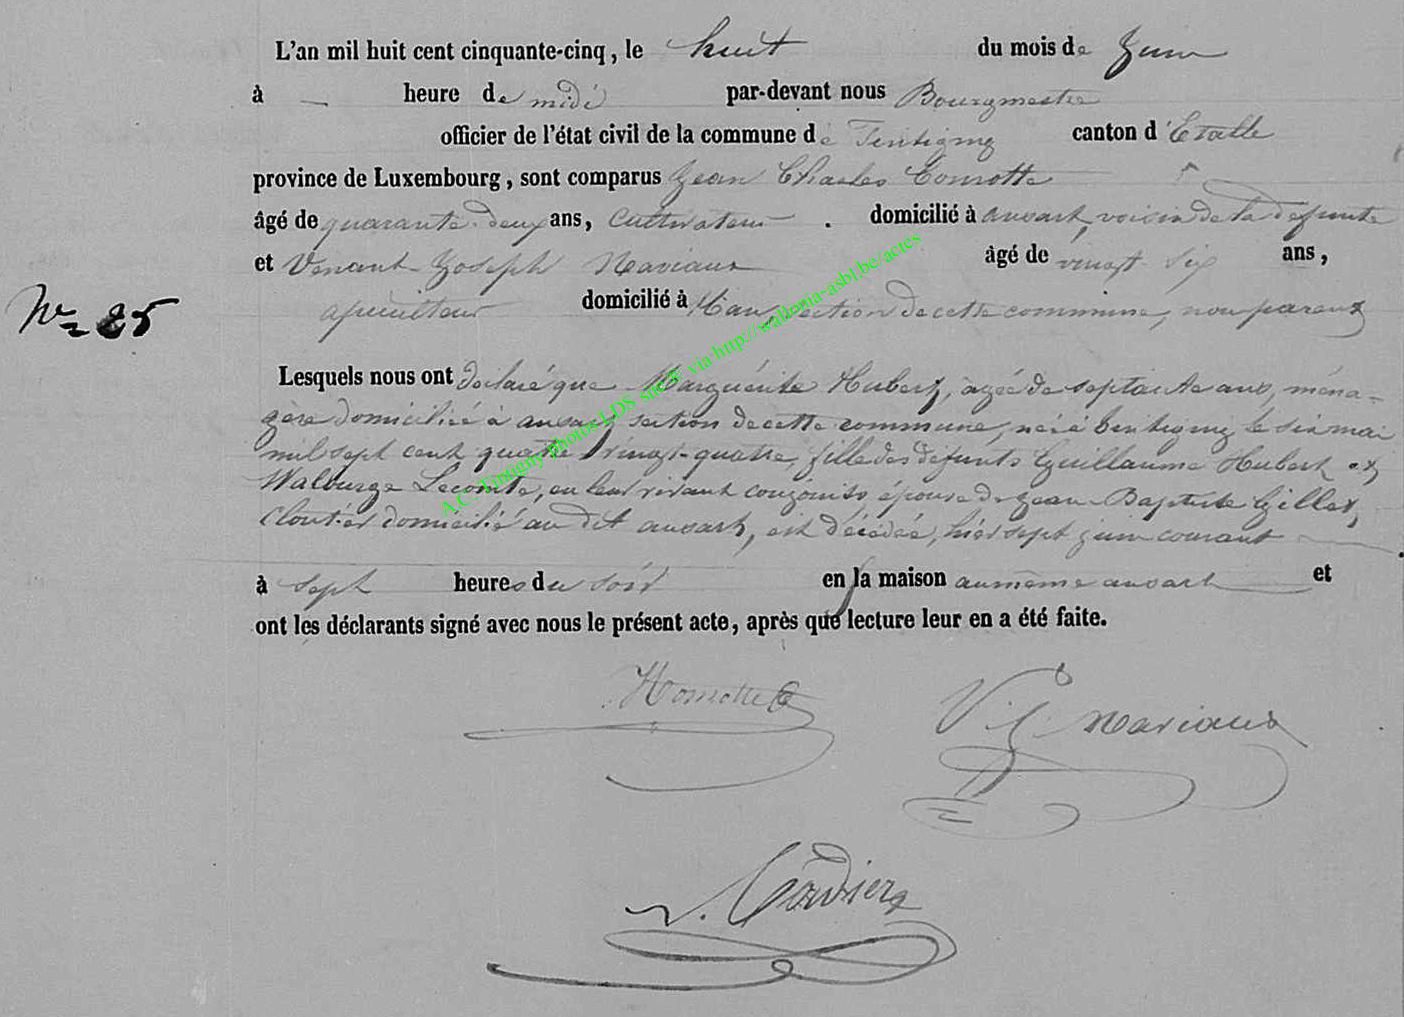 L'an mil huit cent cinquante-cinq, le huit du mois de Juin
à — heure de midi par-devant nous Bourgmestre
officier de l'état civil de la commune de Tintigny canton d'Etalle
province de Luxembourg, sont comparus Jean Charles
âgé de quarante-deux ans, cultivateur . domicilié à ansart, voisin de la défunte
et Venant Joseph Mariaux âgé de vingt six ans,
apiculteur domicilié à Han, section de cette commune, non parent
N° 25
Lesquels nous ont déclaré que Marguérite Hubert, agée de septante ans, ména-
gère domiciliée à ansart section de cette commune, née à tintigny le six mai
mil sept cent quatre vingt-quatre, fille des défunts Guillaume Hubert et
Walburge Lecomte, en leur vivant conjoints épouse de Jean Baptiste Gillet,
cloutier domicilié au dit ansart, est décédée, hier sept juin courant
à sept heures du soir en la maison au même ansart et
ont les déclarants signé avec nous le présent acte, après que lecture leur en a été faite.
V. J. Mariaux
A.C. Tintigny photos LDS via http://wallonia-asbl.be/actes